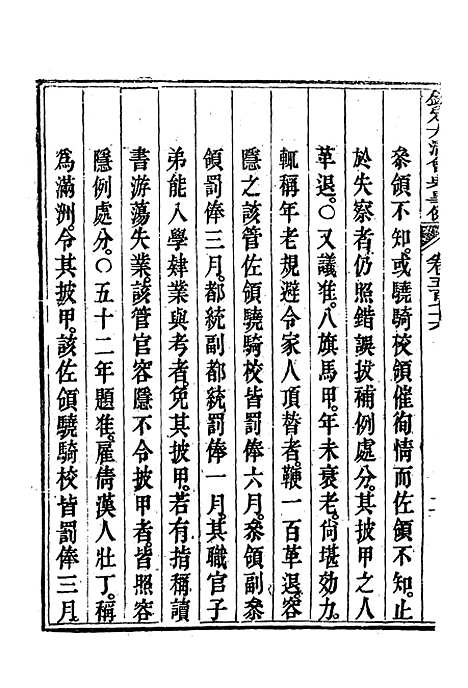 欽定大清會典事例 卷五百二十六
叅領不知。或驍騎校領催徇情而佐領不知。止
於失察者。仍照錯誤拔補例處分。其披甲之人
革退。○又議准。八旗馬甲。年未衰老。尙堪効力。
輒稱年老規避。令家人頂替者。鞭一百革退。容
隱之該管佐領驍騎校皆罰俸六月。叅領副叅
領罰俸三月。都統副都統罰俸一月。其職官子
弟能入學肄業與考者。免其披甲。若有揹稱讀
書游蕩失業。該管官容隱不令披甲者。皆照容
隱例處分。○五十二年題准。雇倩漢人壯丁。稱
爲滿洲。令其披甲。該佐領驍騎校皆罰俸三月。